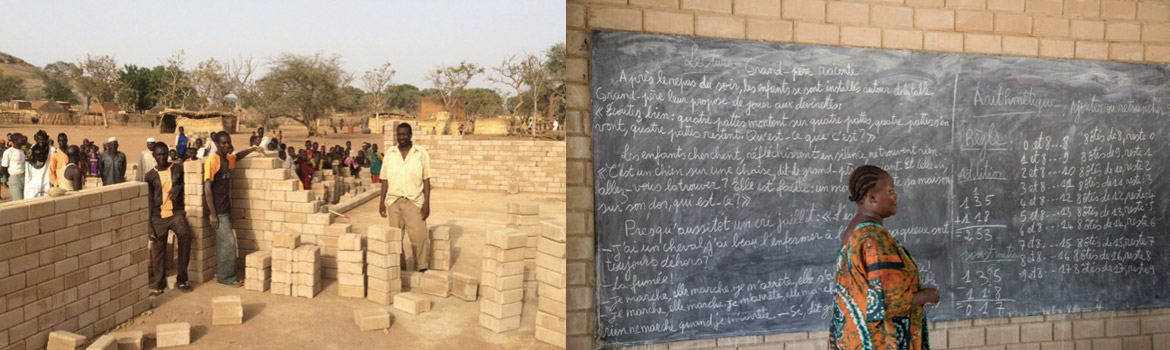 Lecture : Grand-père raconte
Après le repas du soir, les enfants se sont installés autour de
Grand-père leur propose de jouer aux devinettes:
« Écoutez bien: quatre pattes montent sur quatre pattes, quatre pattes s'en
vont, quatre pattes restent. Qu'est-ce que c'est ? »
Les enfants cherchent, réfléchissent en silence, ne trouvent rien
« C'est un chien sur une chaise, dit le grand-père. Et celle-ci,
allez-vous la trouver ? Elle est facile: un sa maison
sur son dos, qui est-ce ? »
Presqu'aussitôt un cri jaillit:
J'ai un cheval, j'ai beau l'enfermer à sont
toujours dehors ?
La fumée !
Je marche, elle marche, je m'arrête, elle
marche, elle marche. Je m'arrête, elle
rien ne marche quand je m'arrête. —
Arithmétique
Ajouter ou retrancher
Règle
Addition
135
+ 118
253
135
118
017
0 et 8...8 8 ôtés de 8, reste 0
1 et 8...9 8 ôtés de 9, reste 1
2 et 8...10 8 ôtés de 10, reste 2
3 et 8...11 8 ôtés de 11, reste 3
4 et 8...12 8 ôtés de 12, reste 4
5 et 8...13 8 ôtés de 13, reste 5
6 et 8...14 8 ôtés de 14, reste 6
7 et 8...15 8 ôtés de 15, reste 7
8 et 8...16 8 ôtés de 16, reste 8
9 et 8...17 8 ôtés de 17, reste 9